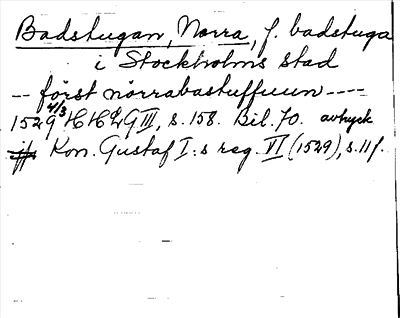 Badstugan, Norra, f. badstuga
i Stockholms stad
-- först nörrabastuffuun ----
1529 4/3 HH 2 G III, s. 158. Bil. 70. avtryck
jfr Kon. Gustaf I:s reg. VI (1529), s. 11 f.